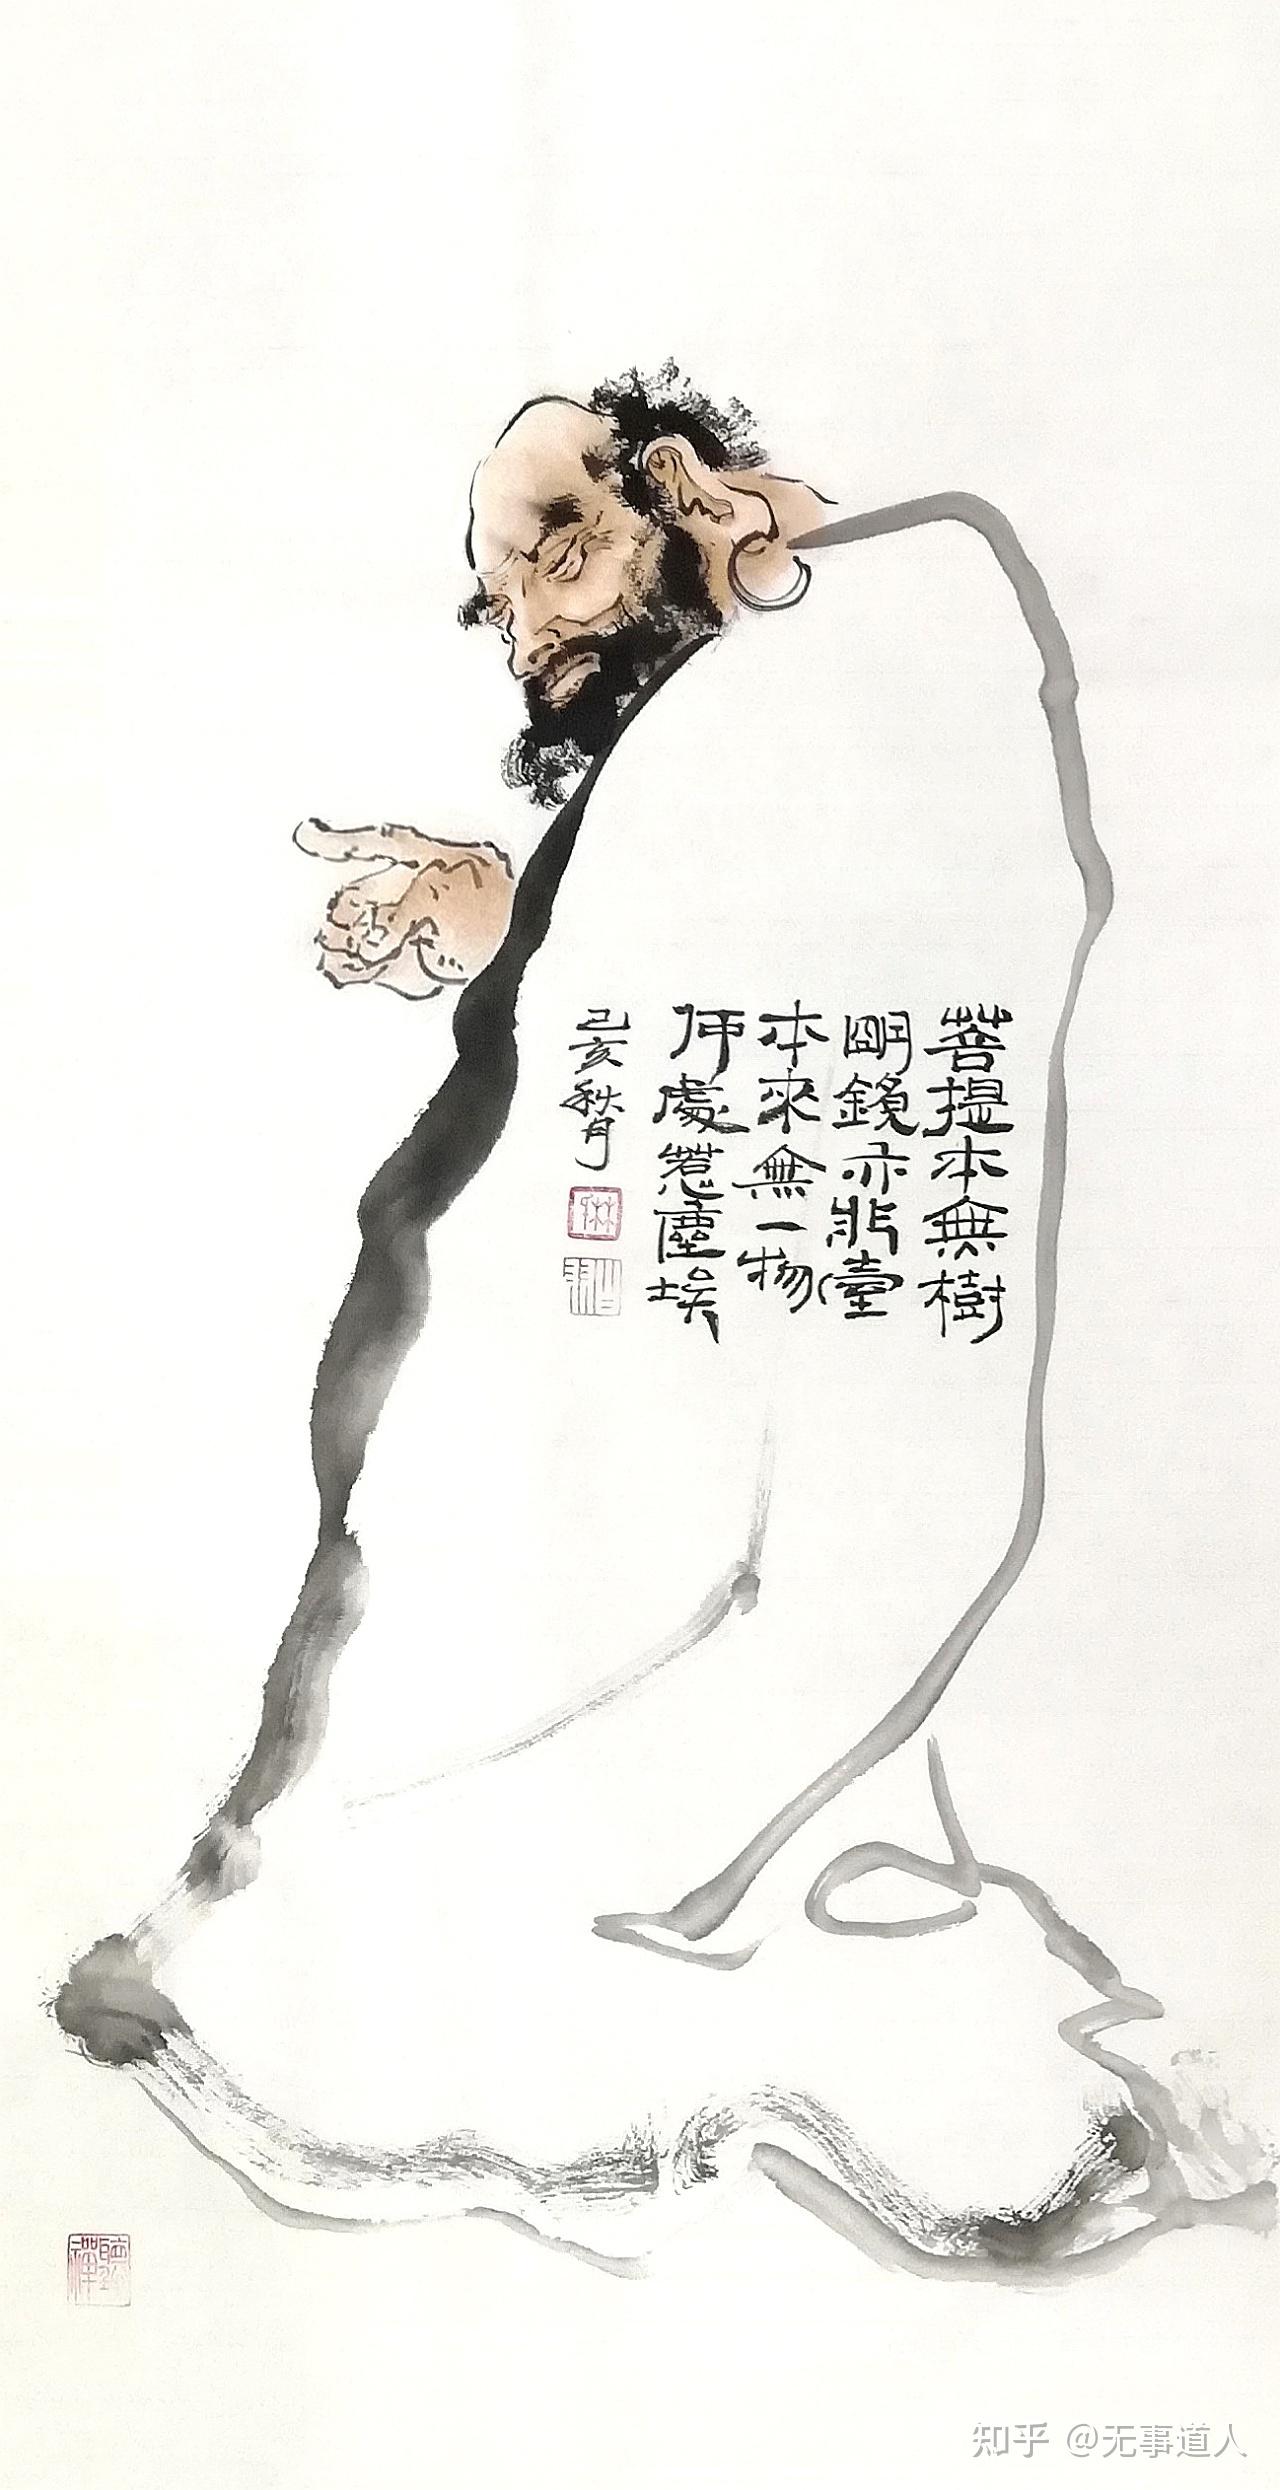 菩提本無樹
明鏡亦非臺
本來無一物
何處惹塵埃
己亥秋月
知乎 @无事道人